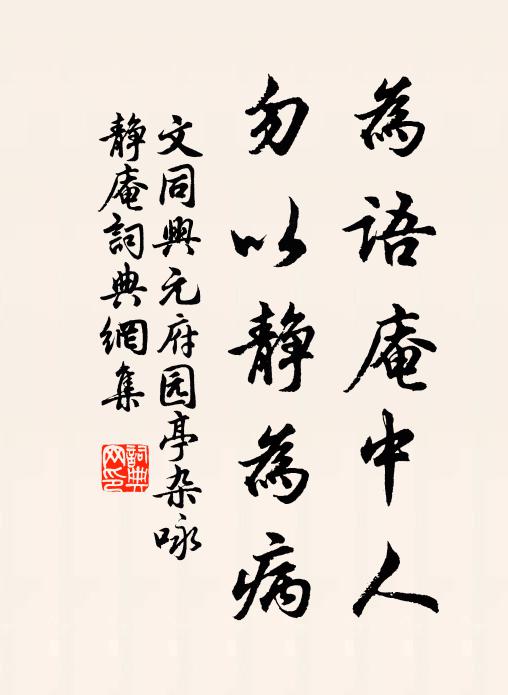 為語庵中人
勿以靜為病
文同興元府园亭杂咏
靜庵詞典網集
詞典网印